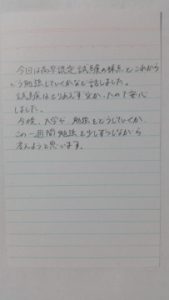 今回は高卒認定試験の採点とこれから
どう勉強していくかなど話しました。
試験はとりあえず全か たので安心
しました。
今後、大学や、勉強をどうしていくか、
この一週間勉強も少しずつしながら
考えようと思います。